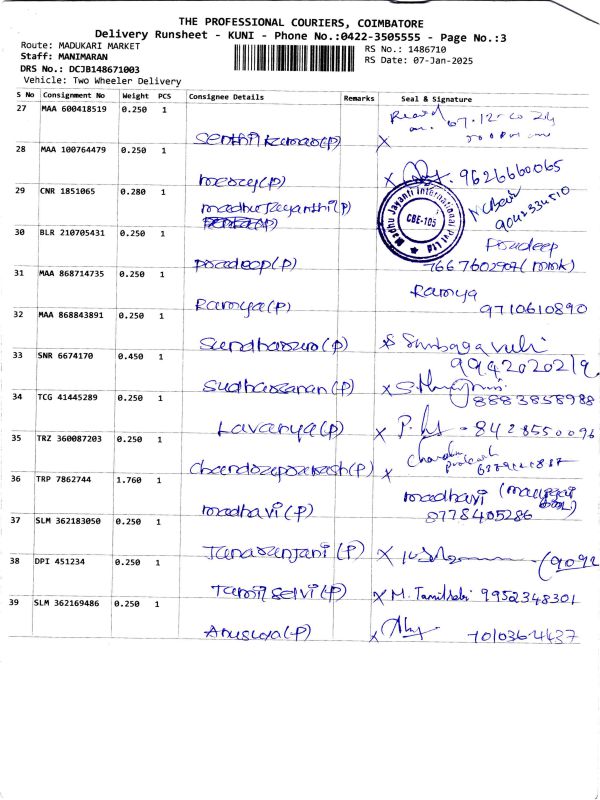 THE PROFESSIONAL COURIERS, COIMBATORE
Delivery Runsheet - KUNI - Phone No.:0422-3505555 - Page No.:3
Route: MADUKARI MARKET
Staff: MANIMARAN
DRS No.: DCJB148671003
Vehicle: Two Wheeler Delivery
RS No.: 1486710
RS Date: 07-Jan-2025
S No Consignment No Weight PCS Consignee Details Remarks Seal & Signature
27 MAA 600418519 0.250 1
Senthil kumar(P) X
28 MAA 100764479 0.250 1
mercy(P) X 9626660065
29 CNR 1851065 0.280 1
madhu Jayanthi(P)
Madhu Jayanti International Pvt Ltd
CBE-105
30 BLR 210705431 0.250 1
Pradeep
pradeep(P) 7667602907
31 MAA 868714735 0.250 1
Ramya
Ramya(P) 9710610890
32 MAA 868843891 0.250 1
(P)
33 SNR 6674170 0.450 1
Sudharsanan(P) X 8883858988
34 TCG 41445289 0.250 1
Lavanya(P) X 8428550096
35 TRZ 360087203 0.250 1
Chandraprakash(P) X
36 TRP 7862744 1.760 1
madhavi
madhavi(P) 9778405286
37 SLM 362183050 0.250 1
Janaranjani(P) X (9092
38 DPI 451234 0.250 1
Tamil selvi(P) X M. Tamilselvi 9952348301
39 SLM 362169486 0.250 1
Anusuya(P) X 7010364437